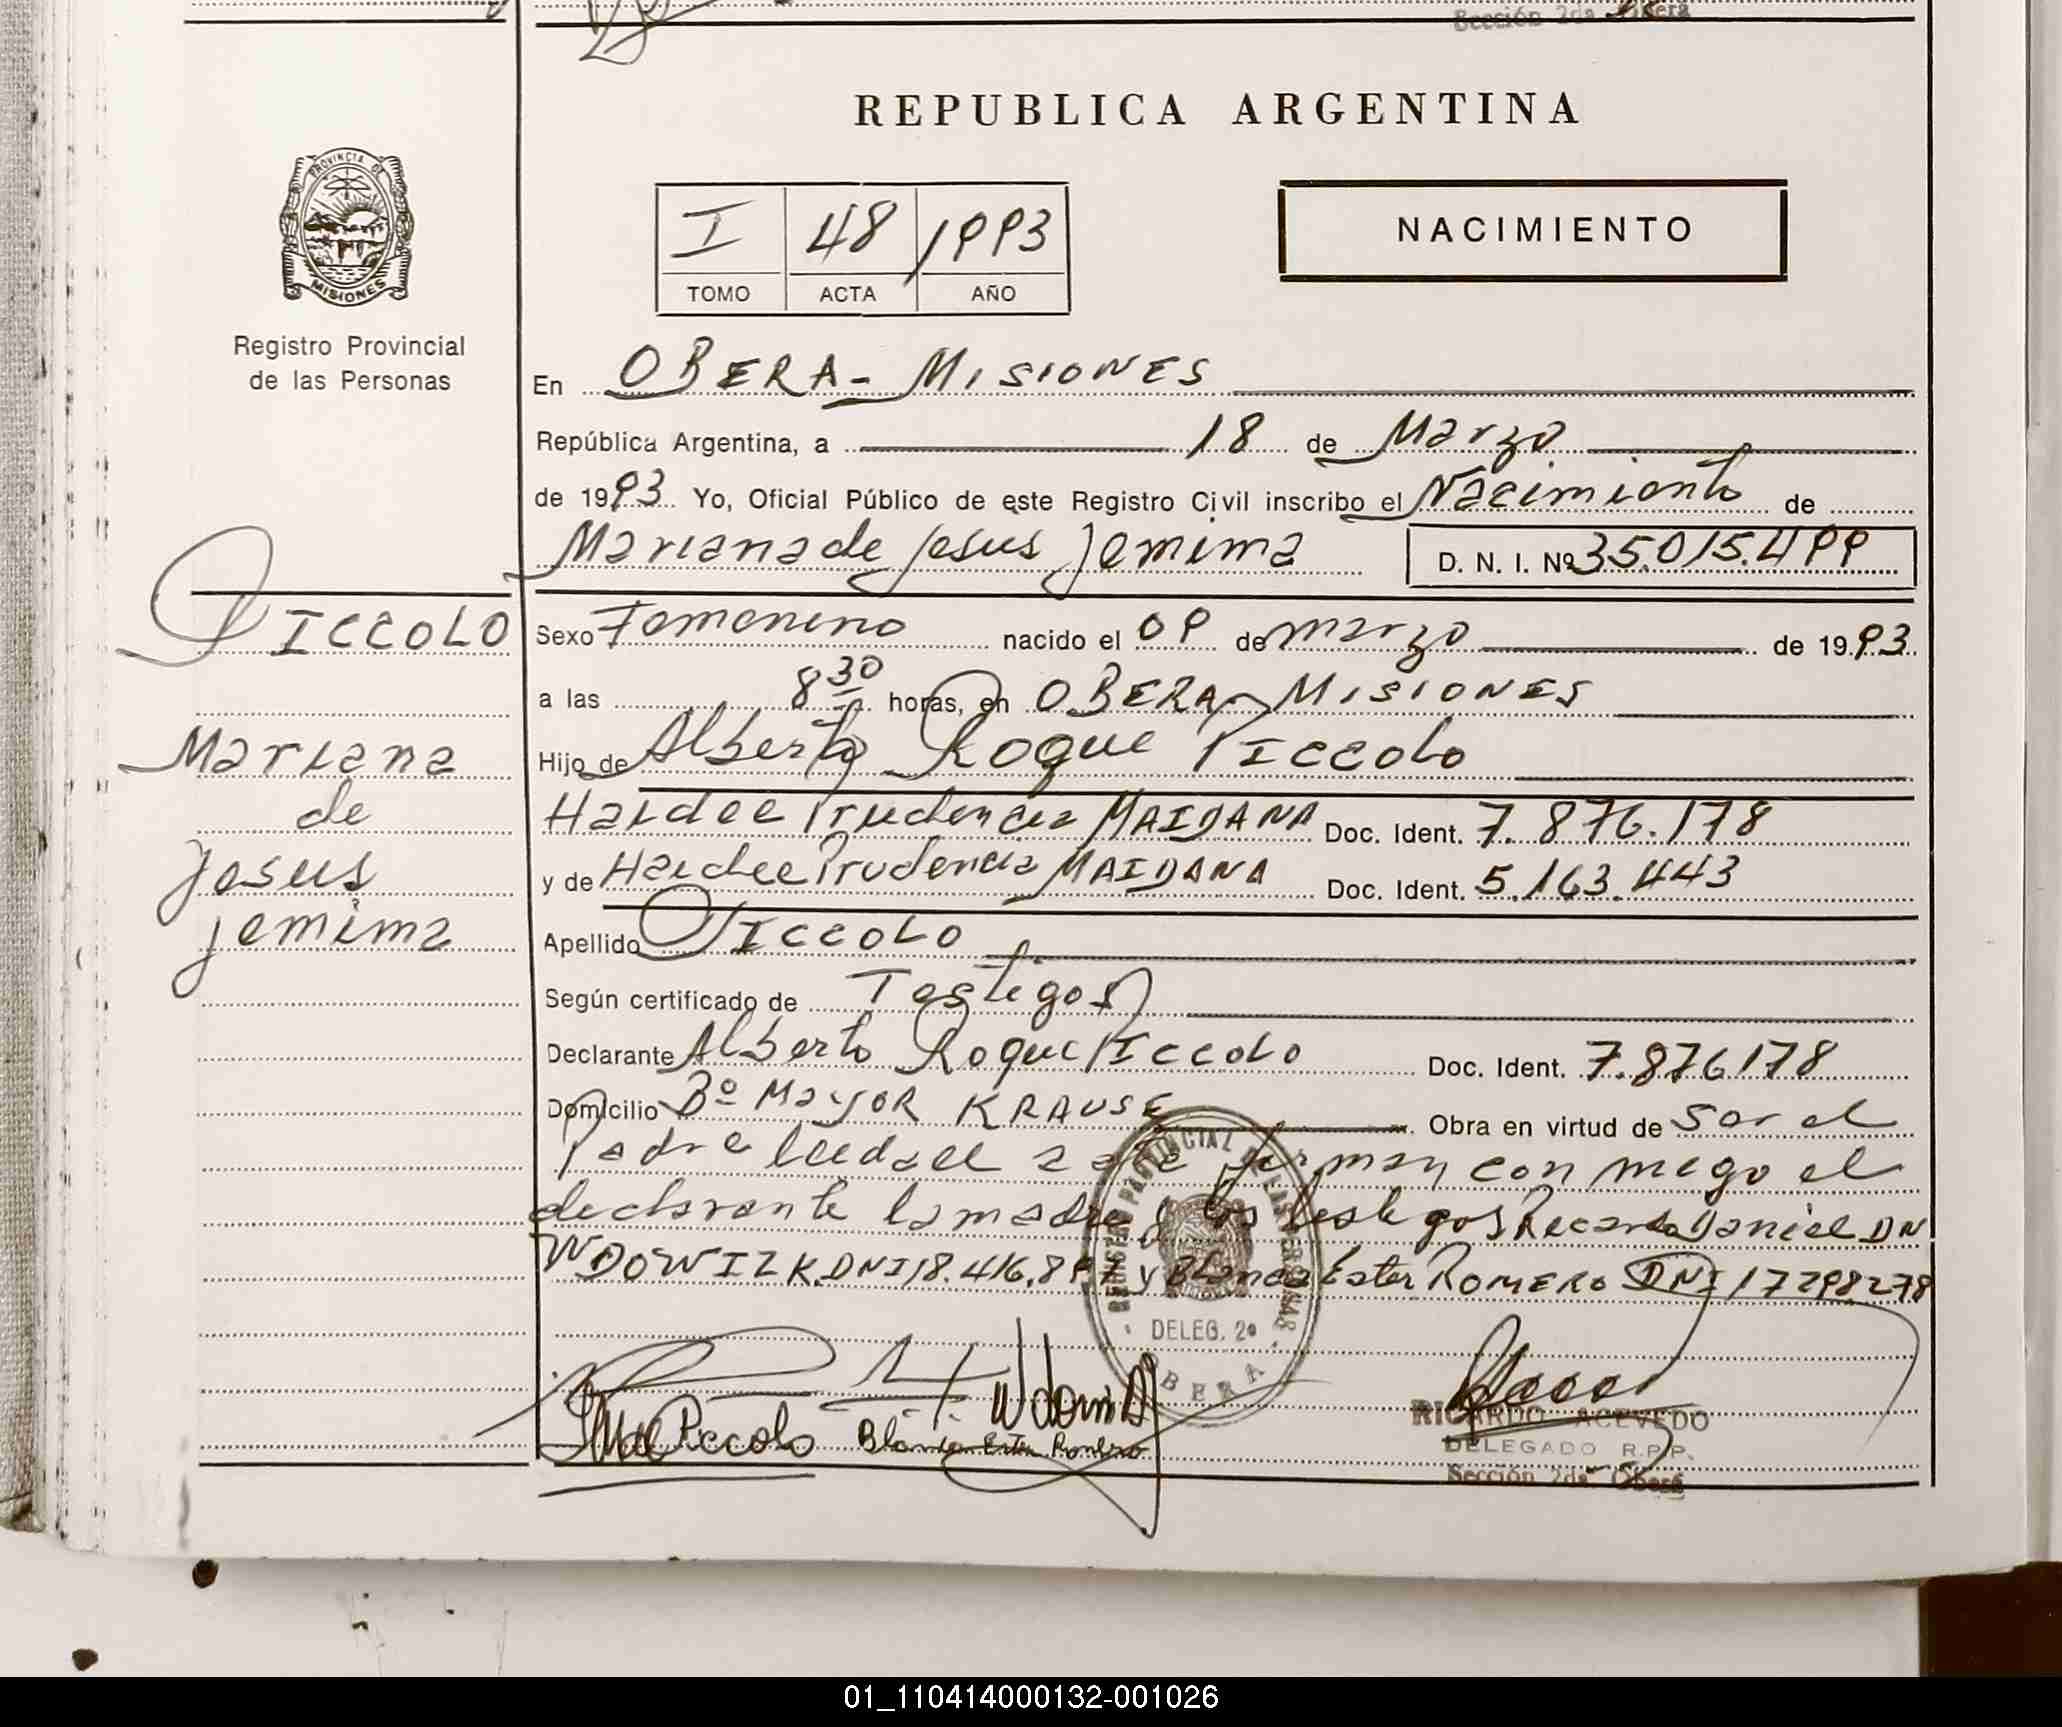 Sección 2da Oberá
REPUBLICA ARGENTINA
PROVINCIA DE
MISIONES
NACIMIENTO
I 48 1993
TOMO ACTA AÑO
Registro Provincial
de las Personas
En OBERA - MISIONES
República Argentina, a 18 de Marzo
de 1993 Yo, Oficial Público de este Registro Civil inscribo el Nacimiento de
Mariana de Jesus Jemima D. N. I. Nº 35.015.499
PICCOLO
Mariana
de
Jesus
Jemima
Sexo Femenino nacido el 09 de marzo de 1993
a las 8 30 horas, en OBERA - MISIONES
Hijo de Alberto Roque PICCOLO
Haidee Prudencia MAIDANA Doc. Ident. 7.876.178
y de Haidee Prudencia MAIDANA Doc. Ident. 5.163.443
Apellido PICCOLO
Según certificado de Testigos
Declarante Alberto Roque PICCOLO Doc. Ident. 7.876178
Domicilio Bº MAYOR KRAUSE Obra en virtud de ser el
Padre leida el acta firman con migo el
declarante la madre y los testigos Ricardo Daniel DN
WDOWIZK. DNI 18.416.897 y Blanca Ester ROMERO DNI 17298278
REGISTRO PROVINCIAL DE LAS PERSONAS
DELEG. 2ª
OBERA
Piccolo Blanca Ester Romero
RICARDO ACEVEDO
DELEGADO R.P.P.
Sección 2da - Oberá
01_110414000132-001026